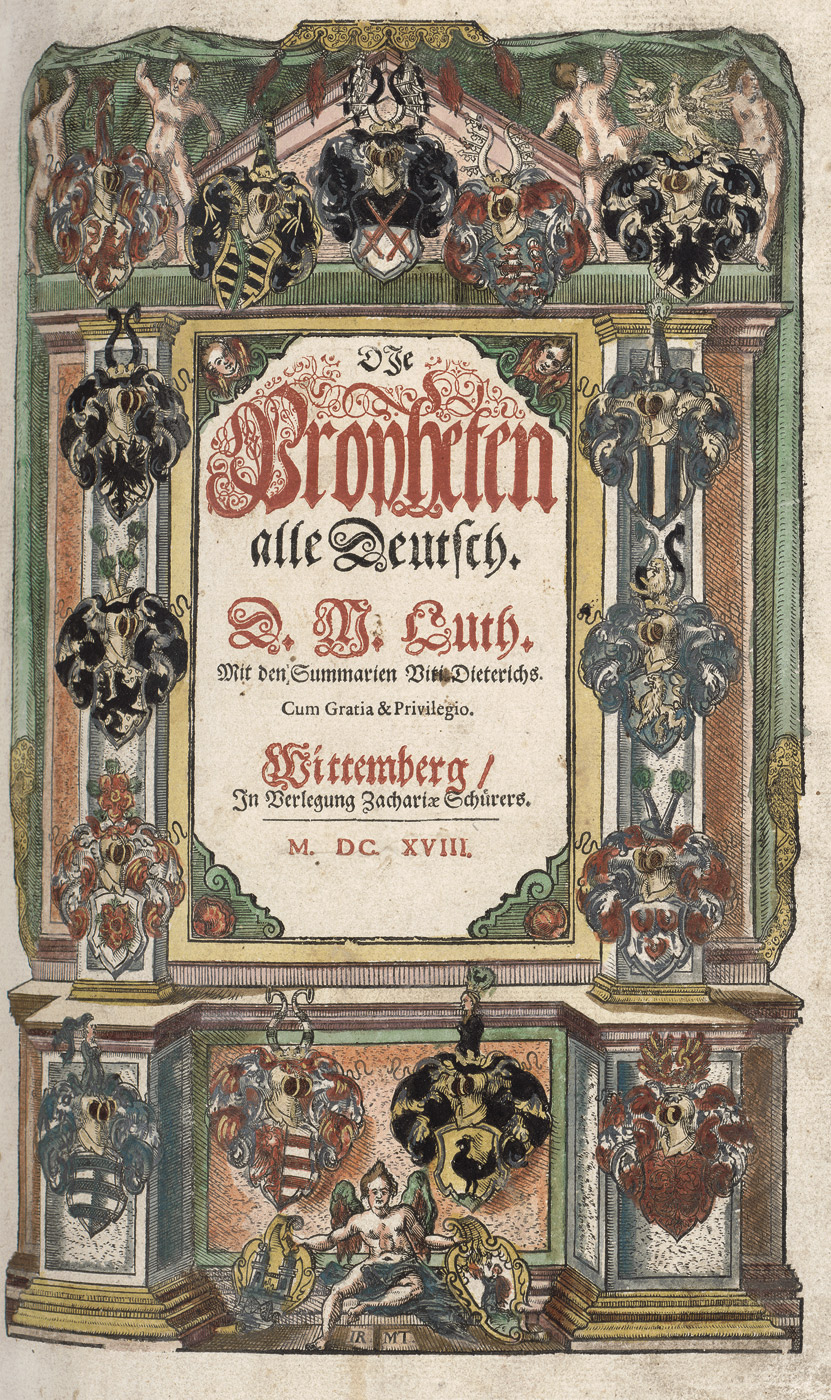 DJe
Propheten
alle Deutsch.
D. M. Luth.
Mit den Summarien Viti Dieterichs.
Cum Gratia & Privilegio.
Wittemberg /
Jn Verlegung Zachariæ Schürers.
M. DC. XVIII.
IR MT